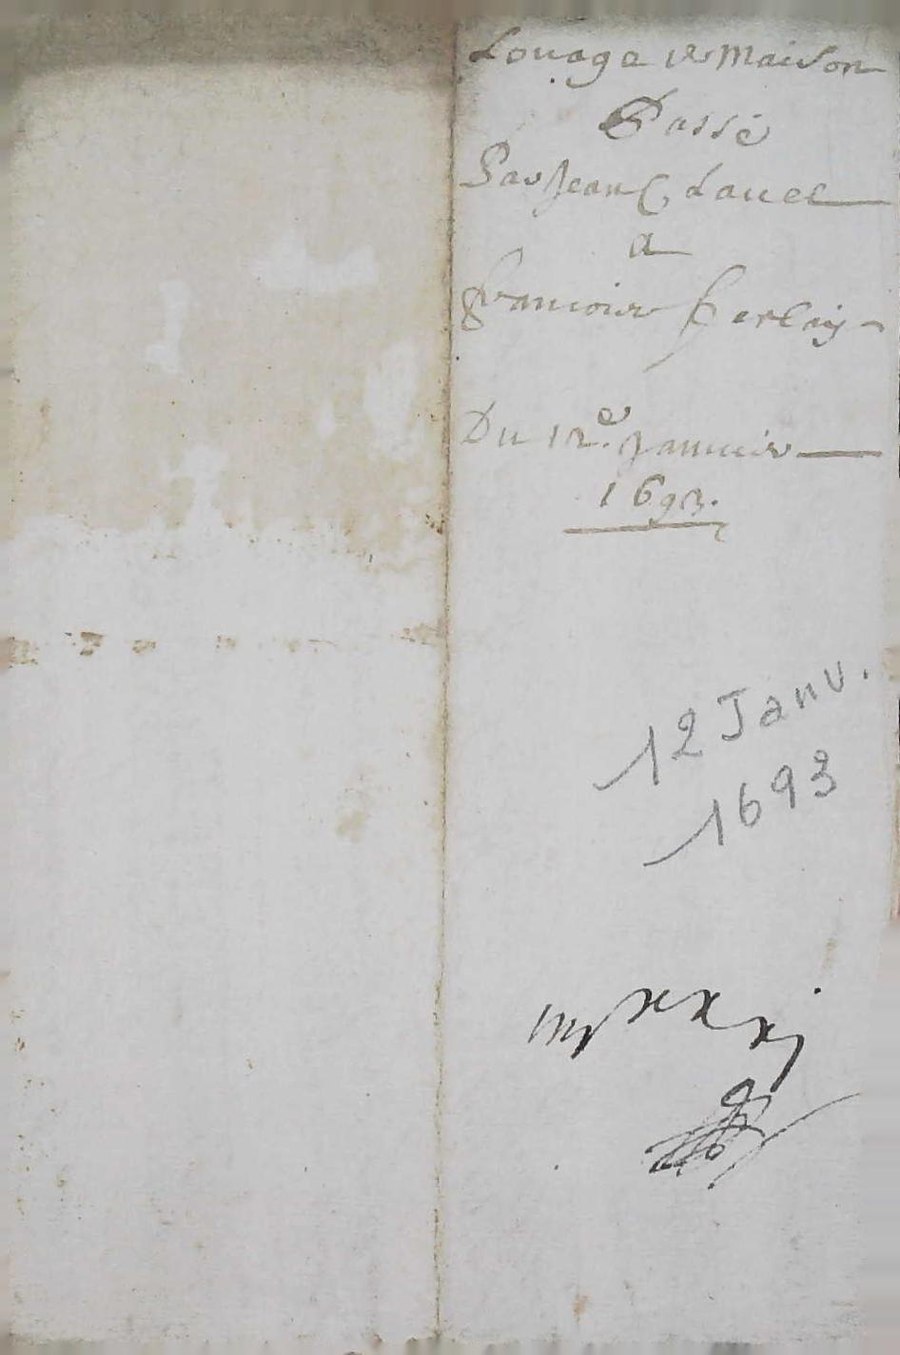 Louage de Maison
Passé
Par Jean C Lauet
a
francois
Du 12e. Januier
1693.
12 Janv.
1693